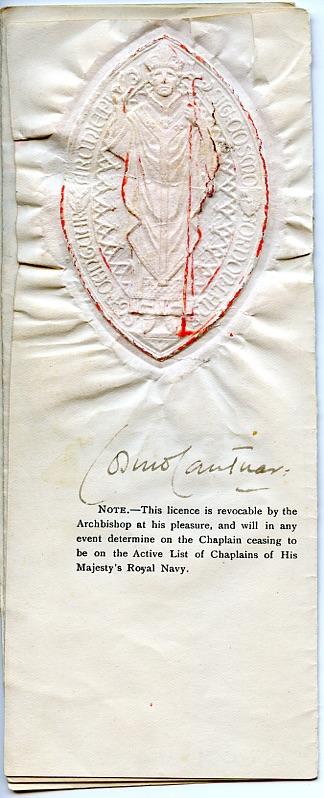 Cosmo Cantuar:
NOTE.—This licence is revocable by the
Archbishop at his pleasure, and will in any
event determine on the Chaplain ceasing to
be on the Active List of Chaplains of His
Majesty's Royal Navy.